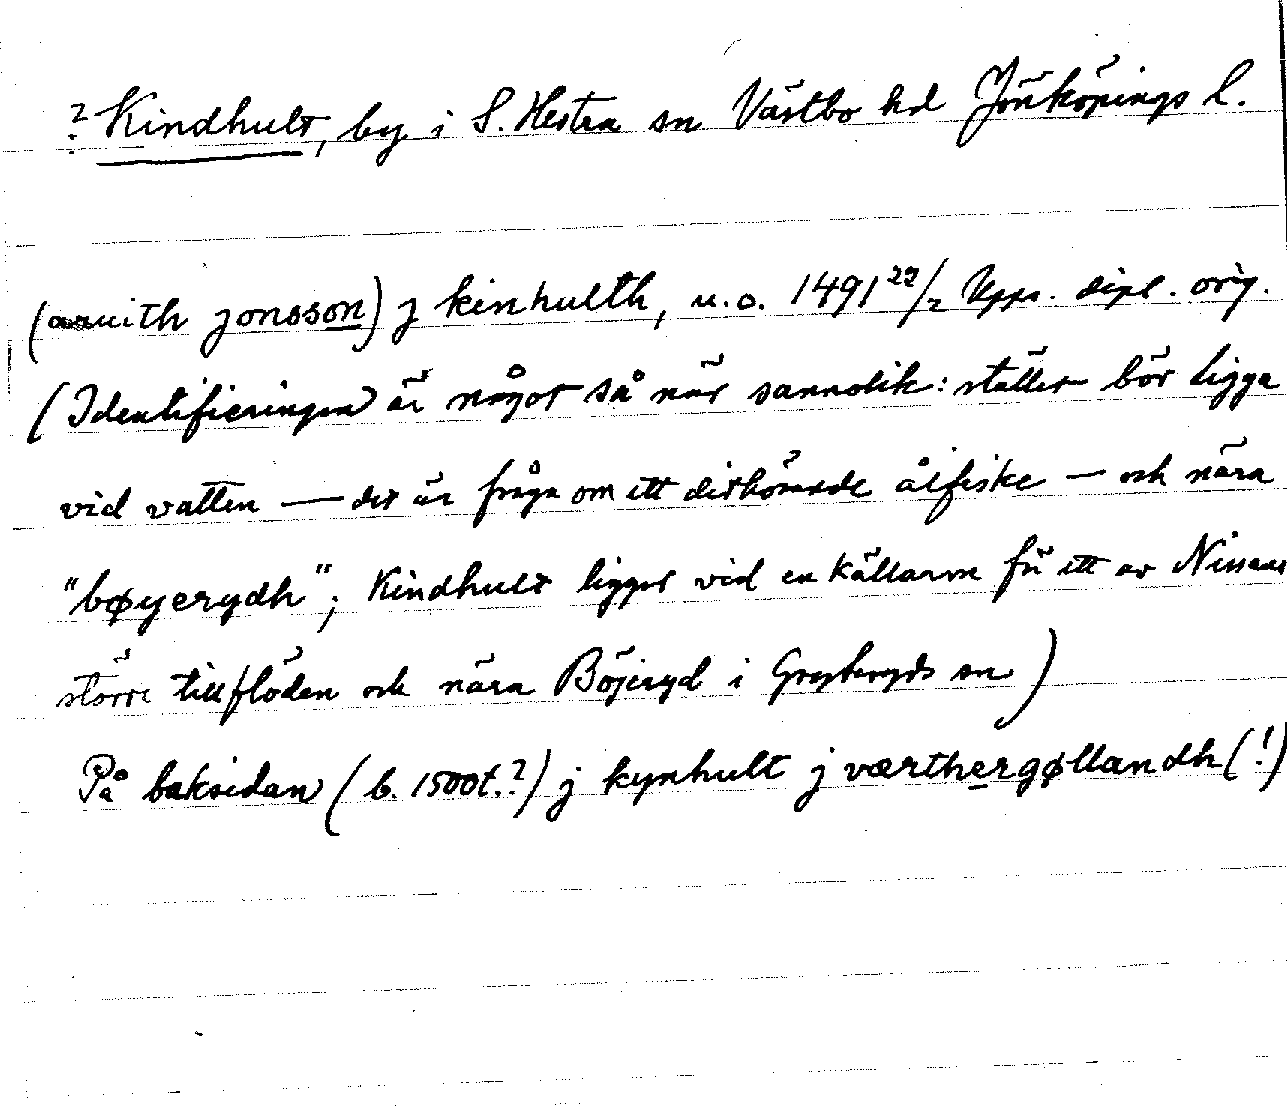 ? Kindhult, by i S. Hestra sn Västbo hd Jönköpings l.
jonsson) j kinhulth, u.o. 1491 22/2 Upps. dipl. orig.
(Identifieringen är något så när sannolik: stället bör ligga
vid vatten — det är fråga om ett dithörande ålfiske — och nära
"bøyerydh"; Kindhult ligger vid en källarm för ett av Nissans
större tillflöden och nära Böjeryd i sn)
På baksidan (b. 1500t.?) j kynhult j værthergøllandh (!)